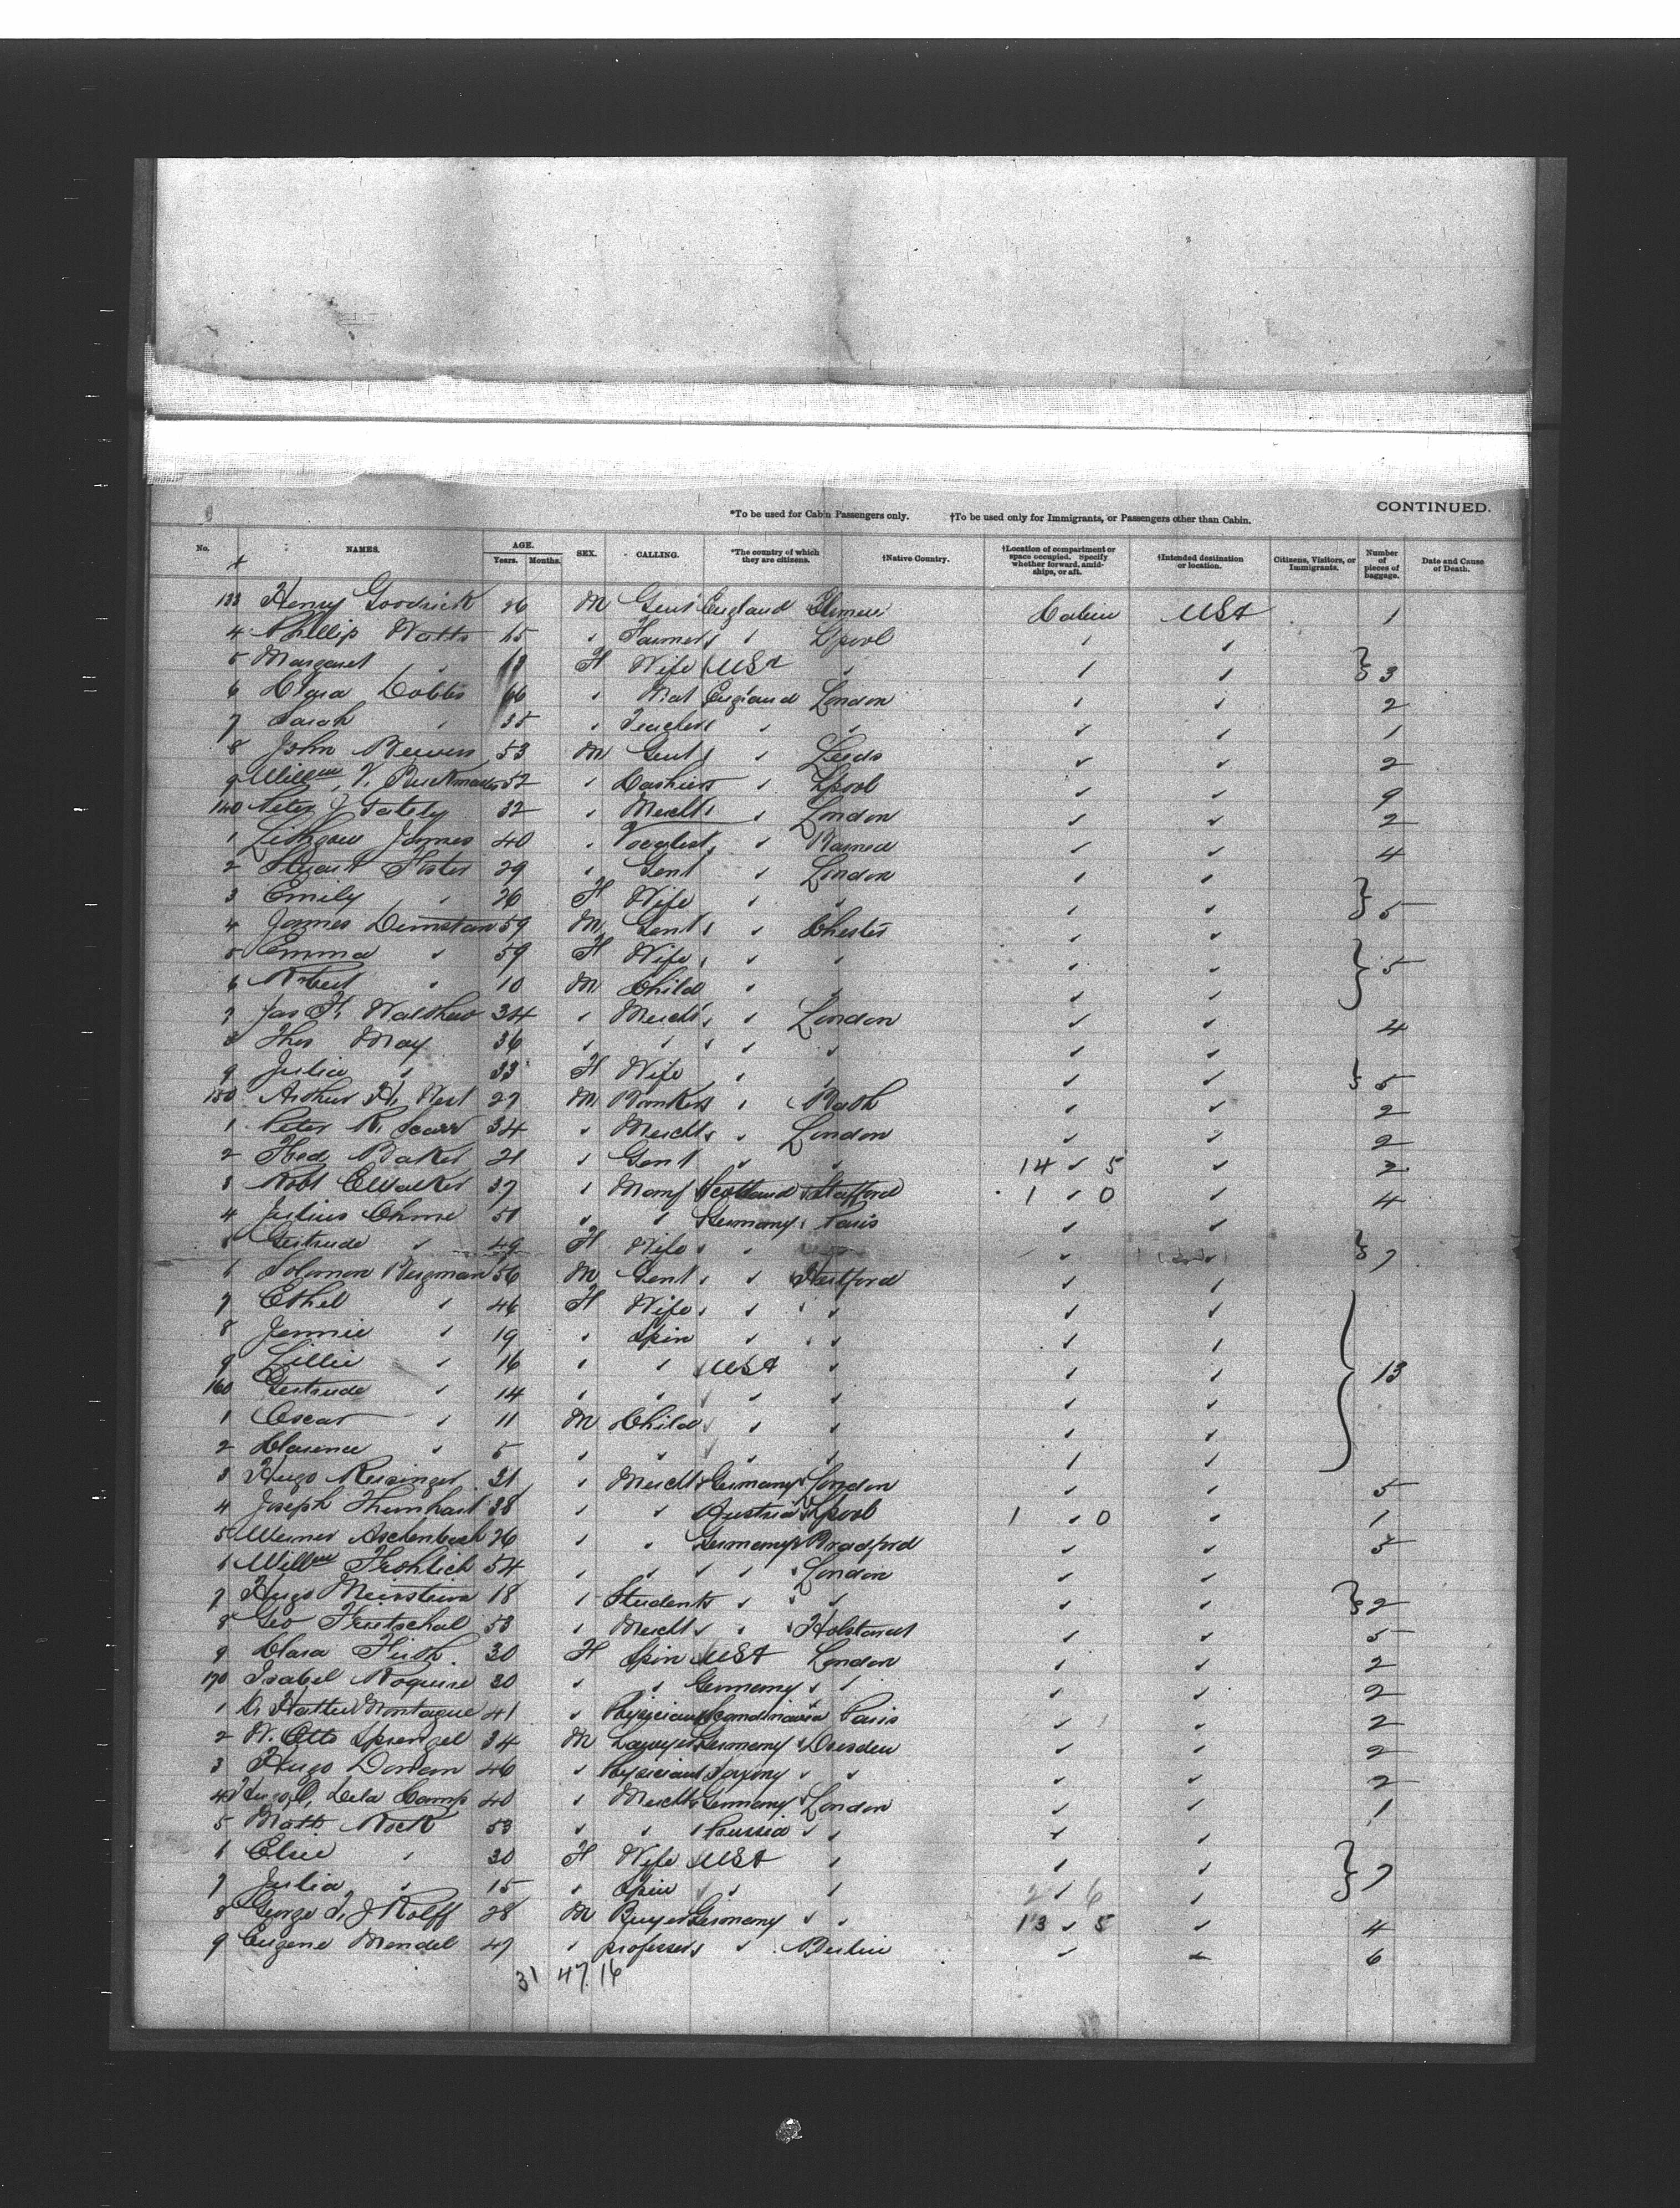 CONTINUED.
*To be used for Cabin Passengers only. †To be used only for Immigrants, or Passengers other than Cabin.
No. NAMES. AGE. Years. Months. SEX. CALLING. *The country of which they are citizens. †Native Country. †Location of compartment or space occupied. Specify whether forward, amidships, or aft. †Intended destination or location. Citizens, Visitors, or Immigrants. Number of pieces of baggage. Date and Cause of Death.
133 Henry Goodrick 26 M Gent England Cabin USA 1
4 Phillip Watts Farmer " L'pool " "
5 Margaret " F Wife USA " " " } 3
6 Clara Dobbs 66 " England London " " 2
7 Sarah " 35 " Teacher " " " " 1
8 John 53 M Gent " Leeds " " 2
9 Willm V. 52 " Cashier " L'pool " " 9
140 Peter J Gately 32 " Mercht " London " " 2
1 James 40 " Vocalist " " " 4
2 Stuart Foster 29 " Gent " London " "
3 Emily " 26 F Wife " " " " } 5
4 James 59 M Gent " Chester " "
5 Emma " 59 F Wife " " " " } 5
6 Robert " 10 M Child " " " "
7 Jas H. Walthew 34 " Mercht " London " " 4
8 Thos May 36 " " " " " "
9 Julia " 33 F Wife " " " " } 5
150 Arthur H. West 27 M Banker " Bath " " 2
1 Peter R. 34 " Mercht " London " " 2
2 Fred Baker 21 " Gent " " 14 " 5 " 2
3 Robt E Walker 37 " Manf Scotland Stafford 1 " 0 " 4
4 Julius Ohme 51 " " Germany Paris " "
5 Gertrude " 49 F Wife " " " } 7
6 Solomon Bergman 56 M Gent " Hertford " "
7 Ethel " 46 F Wife " " " "
8 Jennie " 19 " Spin " " " "
9 Lillie " 16 " " USA " " " } 13
160 Gertrude " 14 " " " " " "
1 Oscar " 11 M Child " " " "
2 Clarence " 5 " " " " " "
3 Hugo Reisinger 31 " Mercht Germany London " " 5
4 Joseph Thumhart 38 " " Austria L'pool 1 " 0 " 1
5 Werner Aschenbach 26 " " Germany Bradford " " 5
6 Willm Frohlich 54 " " " London " "
7 Hugo Meirstein 18 " Student " " " " } 2
8 Geo Frutschal 53 " Mercht " " " 5
9 Clara Firth 30 F Spin USA London " " 2
170 Isabel Maguire 30 " " Germany " " " 2
1 Hattie Montague 41 " Physician Scandinavia Paris " " 2
2 W. Otto Sprengel 34 M Lawyer Germany Dresden " " 2
3 Hugo 46 " Physician Saxony " " " 2
4 Hugo O. Dela Camp 40 " Mercht Germany London " " 1
5 Matt Rock 53 " " Prussia " " "
6 Elsie " 30 F Wife USA " " " } 7
7 Julia " 15 " Spin " " 2 " 6 "
8 George F. J Rolff 28 M Buyer Germany " 13 " 5 " 4
9 Eugene Mendel 47 " professor " Berlin " " 6
31 47 16